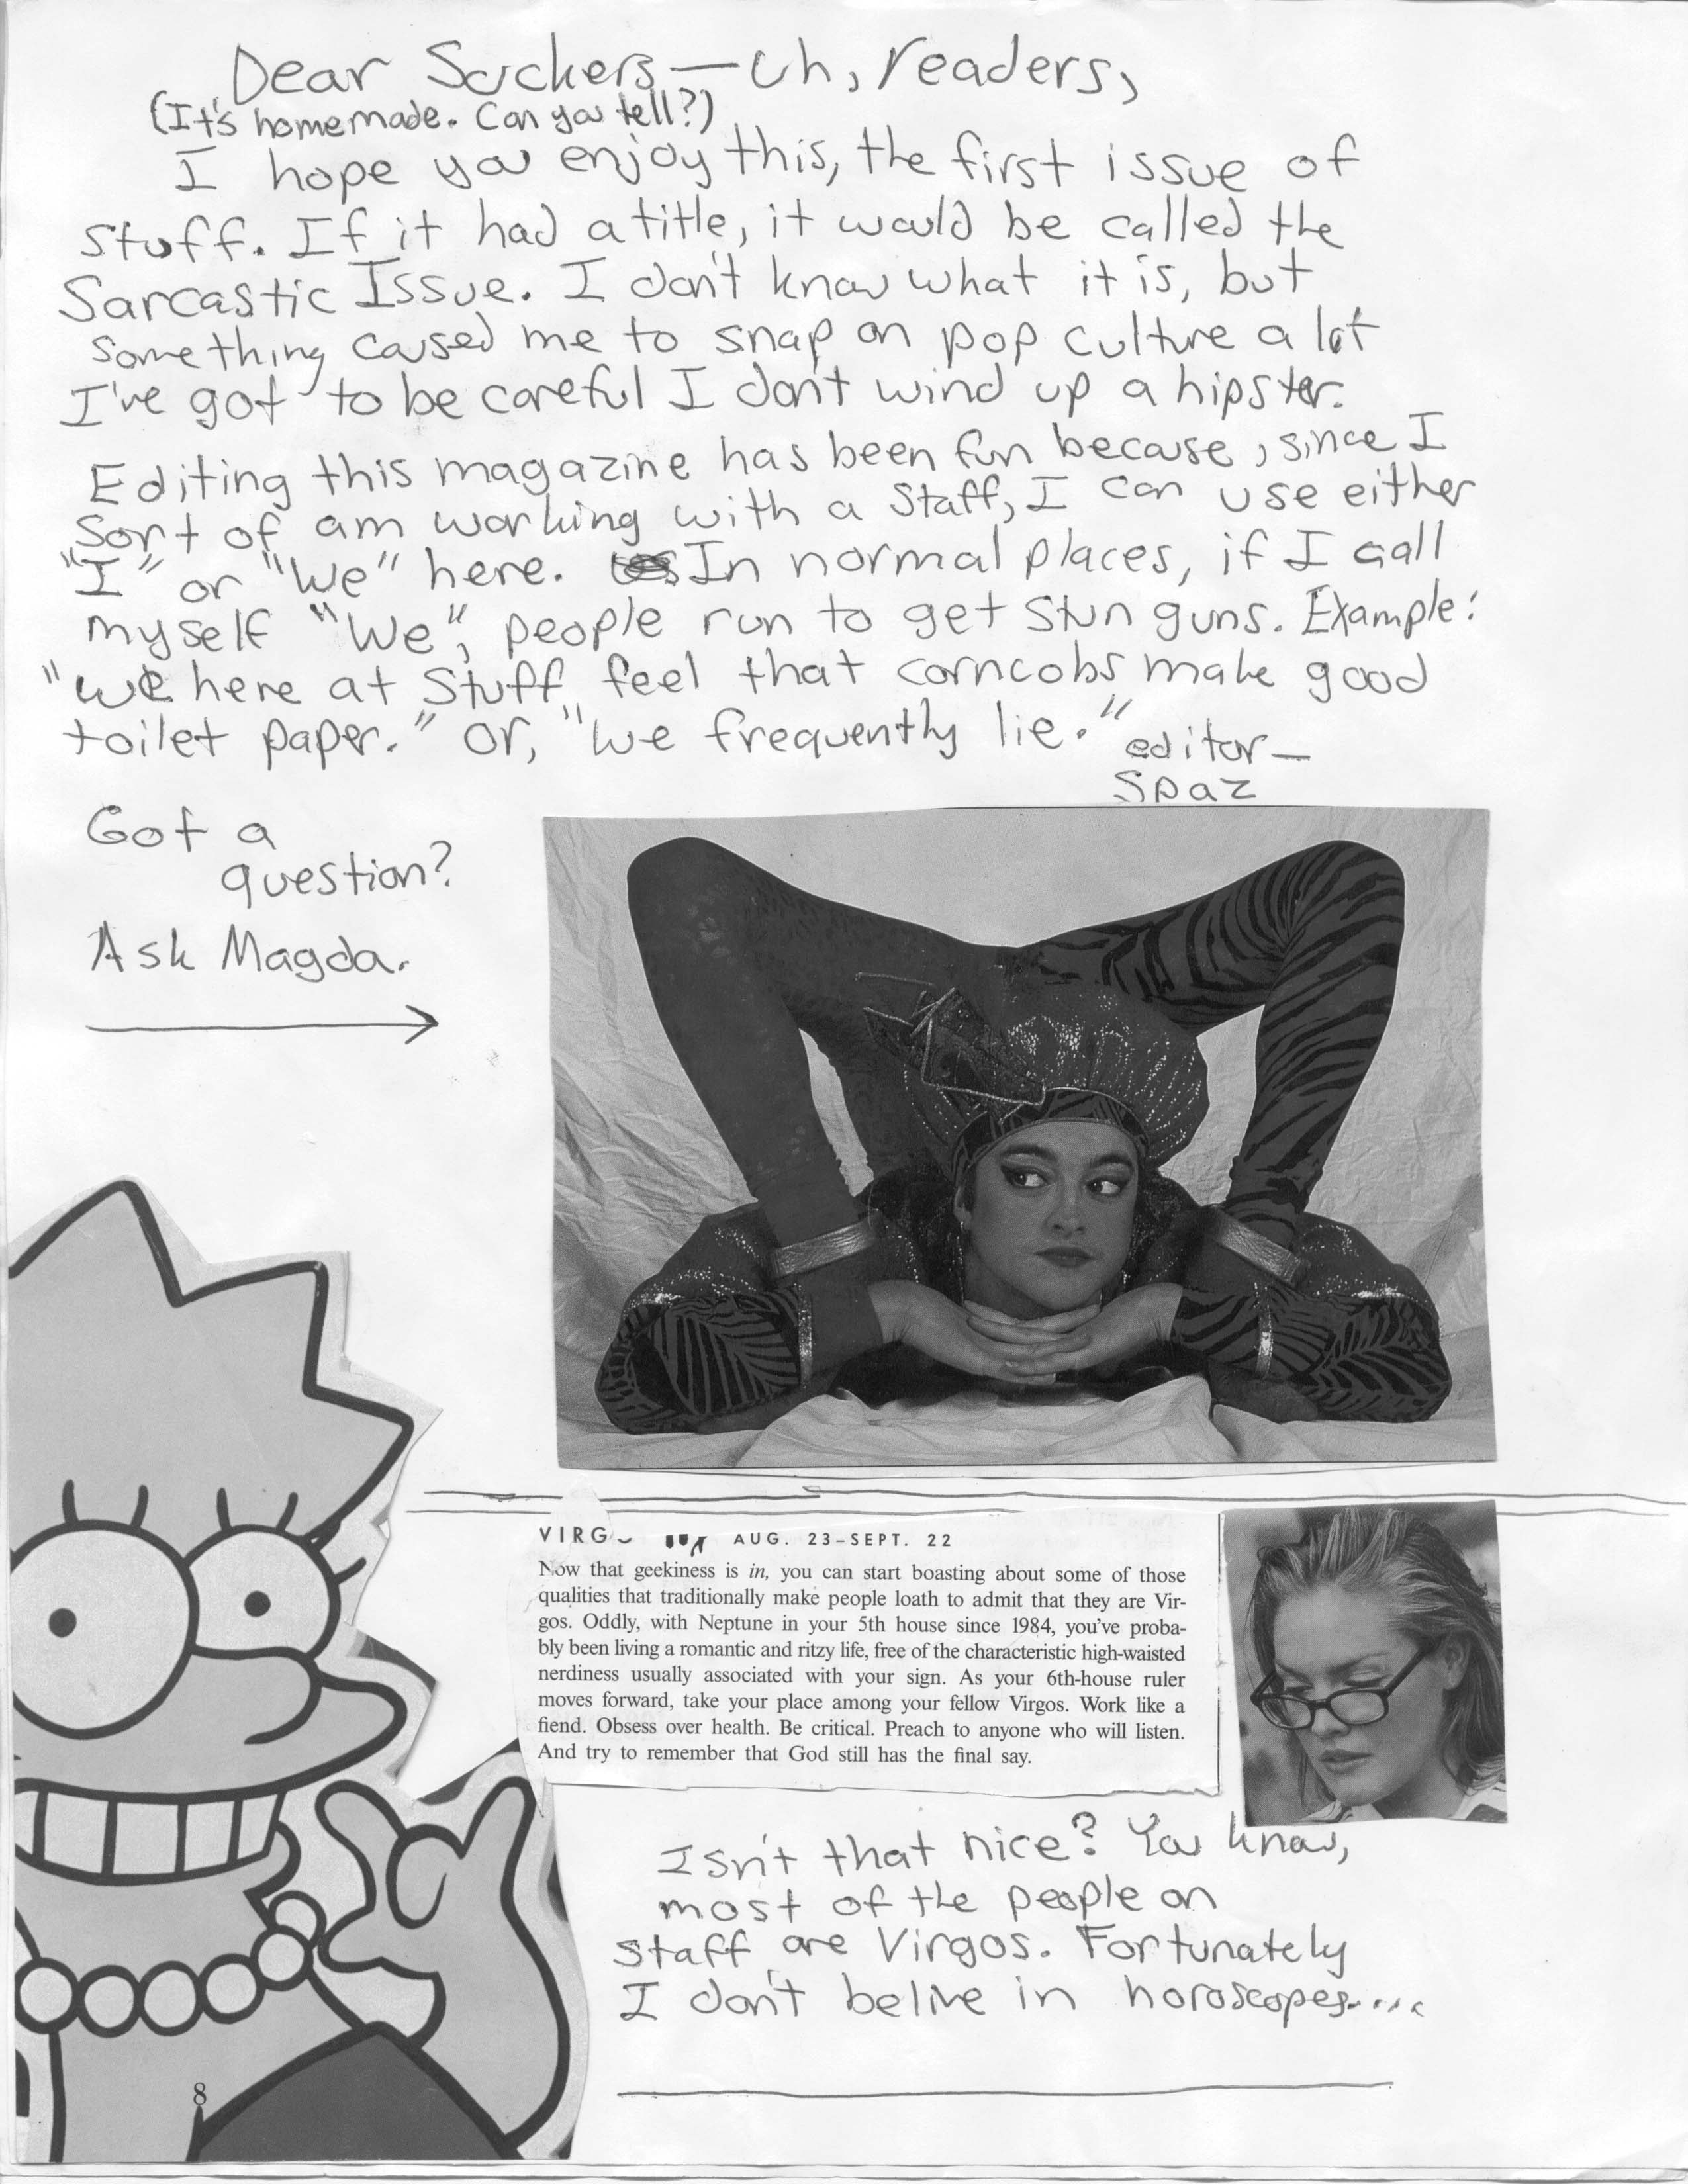 Dear Suckers—uh, readers,
(It's homemade. Can you tell?)
I hope you enjoy this, the first issue of
Stuff. If it had a title, it would be called the
Sarcastic Issue. I don't know what it is, but
something caused me to snap on pop culture a lot
I've got to be careful I don't wind up a hipster.
Editing this magazine has been fun because, since I
sort of am working with a staff, I can use either
"I" or "We" here. In normal places, if I call
myself "We", people run to get stun guns. Example:
"We here at Stuff feel that corncobs make good
toilet paper." Or, "We frequently lie."
editor—
Spaz
Got a
question?
Ask Magda.
VIRGO AUG. 23–SEPT. 22
Now that geekiness is in, you can start boasting about some of those
qualities that traditionally make people loath to admit that they are Vir-
gos. Oddly, with Neptune in your 5th house since 1984, you've proba-
bly been living a romantic and ritzy life, free of the characteristic high-waisted
nerdiness usually associated with your sign. As your 6th-house ruler
moves forward, take your place among your fellow Virgos. Work like a
fiend. Obsess over health. Be critical. Preach to anyone who will listen.
And try to remember that God still has the final say.
Isn't that nice? You know,
most of the people on
staff are Virgos. Fortunately
I don't belive in horoscopes.....
8